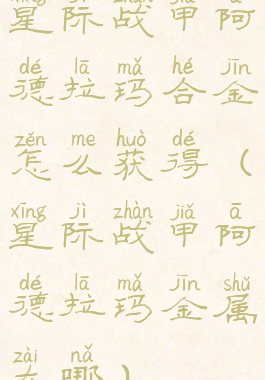 xīng jì zhàn jiǎ ā
星际战甲阿
dé lā mǎ hé jīn
德拉玛合金
zěn me huò dé
怎么获得（
xīng jì zhàn jiǎ ā
星际战甲阿
dé lā mǎ jīn shǔ
德拉玛金属
zài nǎ
在哪）